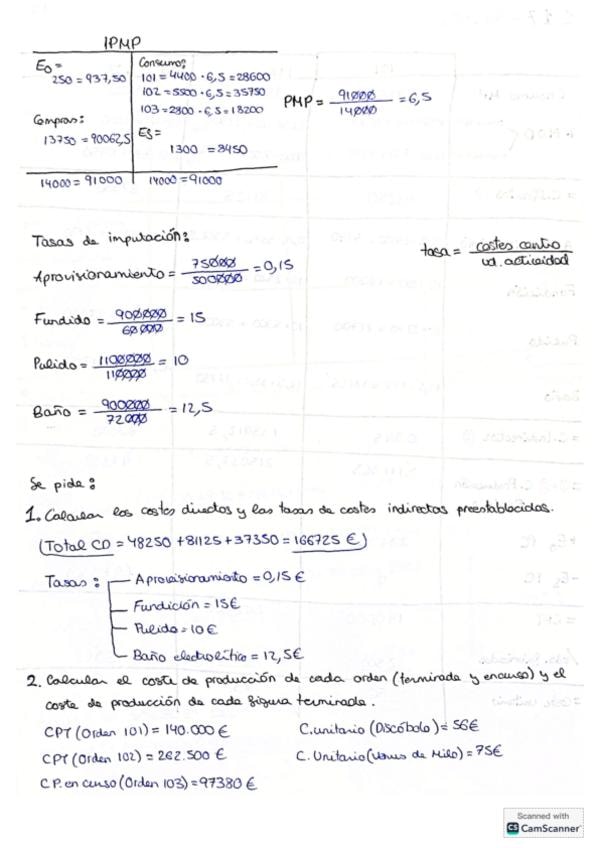 IPMP
E₀ =
250 = 937,50
Compras:
13750 = 90062,5
14000 = 91000
Consumo:
101 = 4400 · 6,5 = 28600
102 = 5500 · 6,5 = 35750
103 = 2800 · 6,5 = 18200
ES =
1300 = 8450
14000 = 91000
PMP = 91000 / 14000 = 6,5
Tasas de imputación:
tasa = costes centro / ud. actividad
Aprovisionamiento = 75000 / 500000 = 0,15
Fundido = 900000 / 60000 = 15
Pulido = 1100000 / 110000 = 10
Baño = 900000 / 72000 = 12,5
Se pide:
1. Calcular los costes directos y las tasas de costes indirectos preestablecidas.
(Total CD = 48250 + 81125 + 37350 = 166725 €)
Tasas: Aprovisionamiento = 0,15 €
Fundición = 15 €
Pulido = 10 €
Baño electrolítico = 12,5 €
2. Calcular el coste de producción de cada orden (terminada y encurso) y el
coste de producción de cada figura terminada.
CPT (Orden 101) = 140.000 €
C.unitario (Discóbolo) = 56 €
CPT (Orden 102) = 262.500 €
C. Unitario (Venus de Milo) = 75 €
CP. en curso (Orden 103) = 97380 €
Scanned with
CS CamScanner